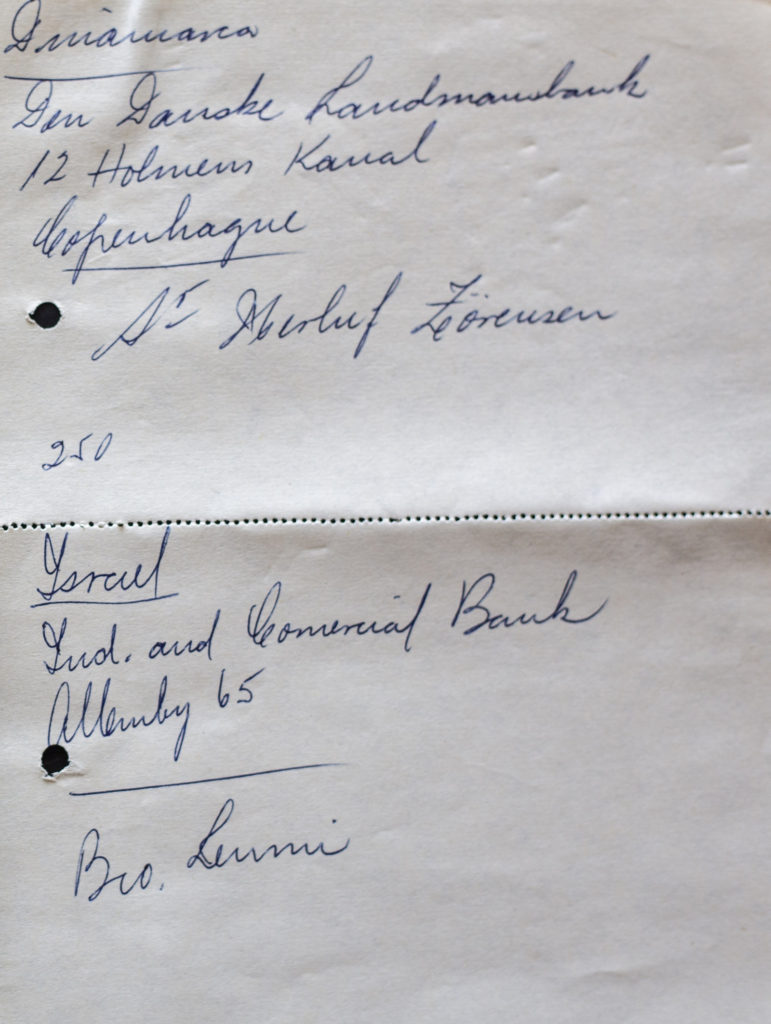 Dinamarca
Den Danske Landmansbank
12 Holmens Kanal
Copenhague
Sr Herluf Zörensen
250
Israel
Ind. and Comercial Bank
Allemby 65
Bco. Leumi